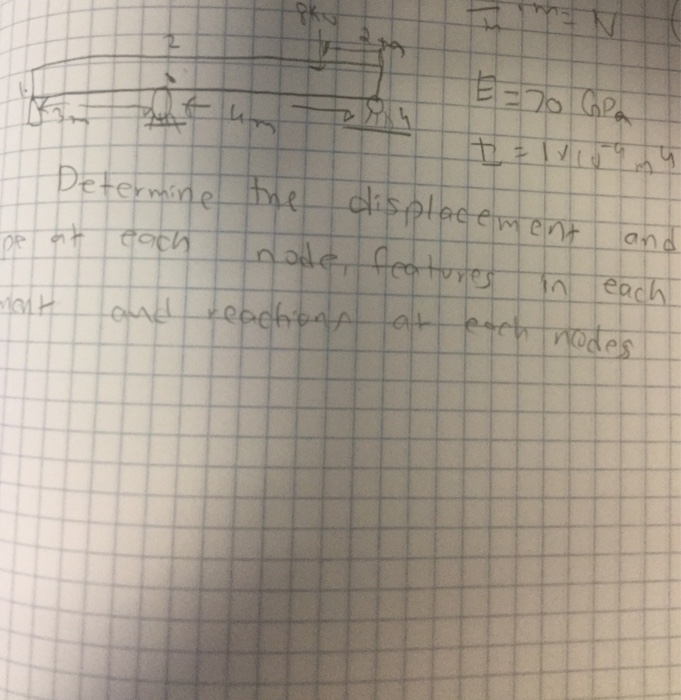 8kN
2
2m
3m
4m
4
m = N
E = 70 GPa
I = 1x10⁻⁴ m⁴
Determine the displacement and
pe at each node, features in each
ment and reactions at each nodes